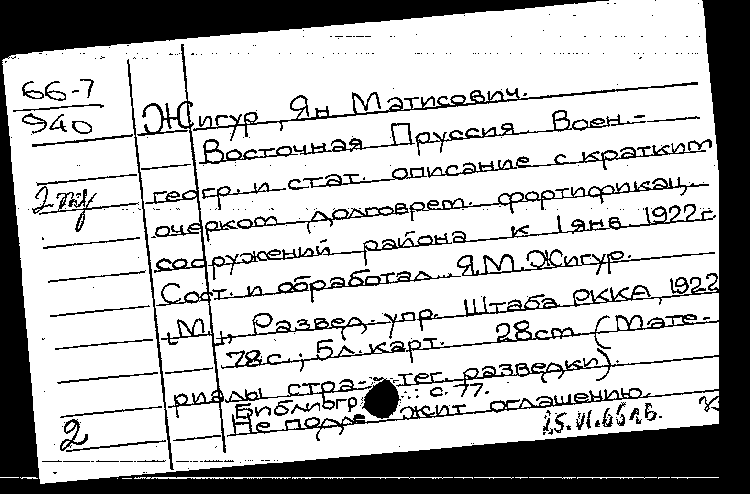 66-7
940
Жигур, Ян Матисович.
Восточная Пруссия Воен.-
геогр. и стат. описание с кратким
очерком долговрем. фортификац.
сооружений района к 1 янв 1922 г.
Сост. и обработал Я.М. Жигур.
[М.], Развед.-упр. Штаба РККА, 1922
78 с.; 5 л. карт. 28 cm (Мате-
риалы стра- тег. разведки).
Библиогр с. 77.
Не подле жит оглашению.
2
25.VI.66